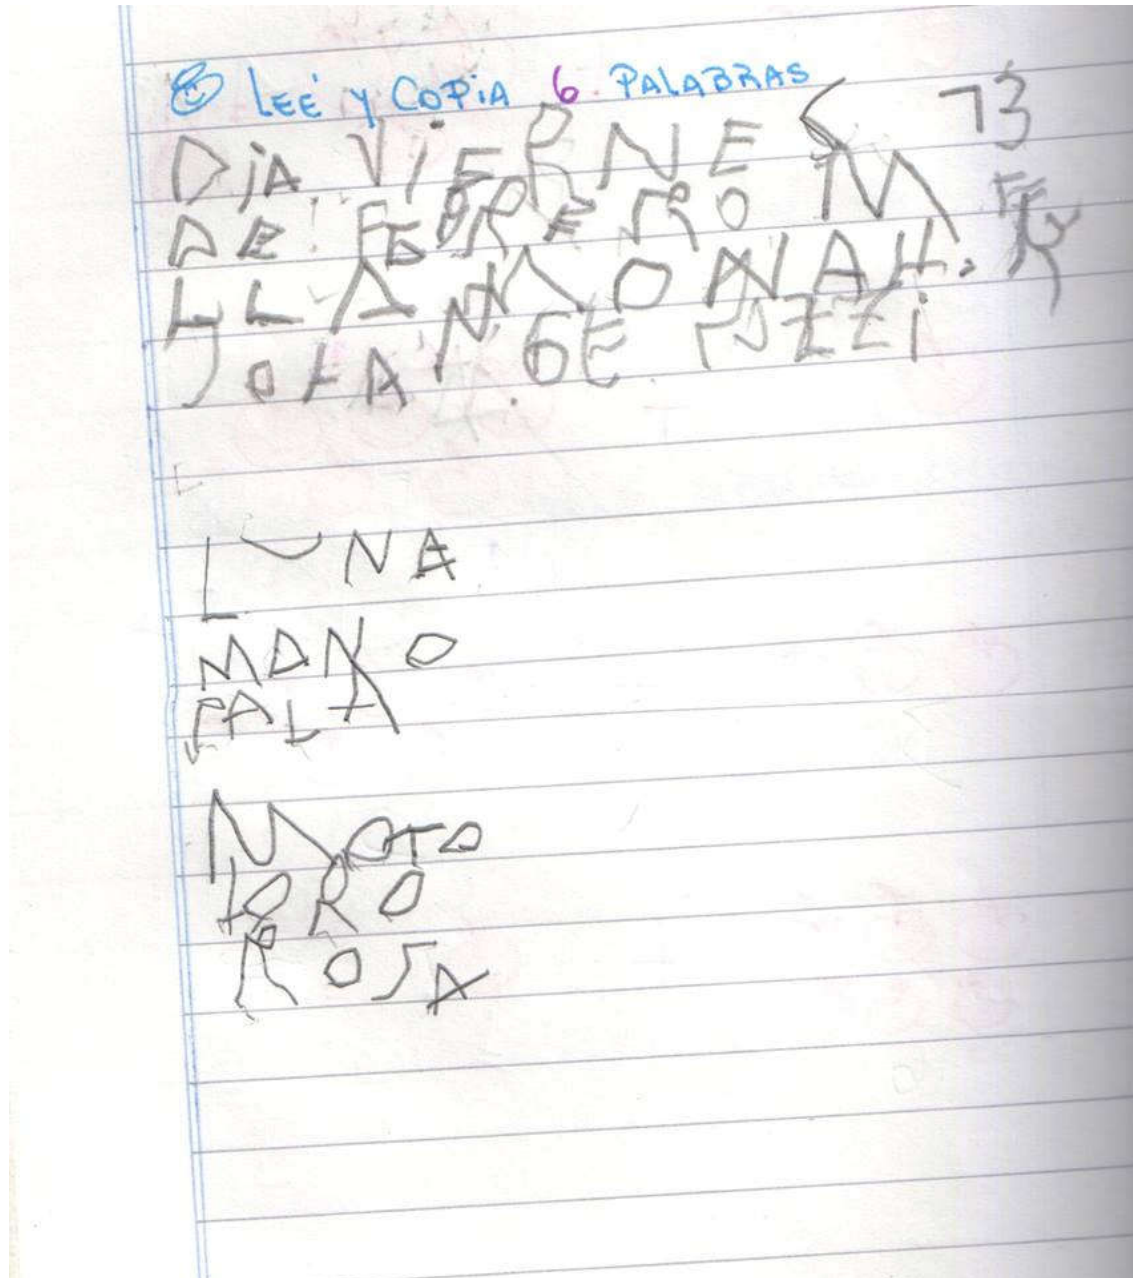 LEÉ Y COPIA 6 PALABRAS
DIA VIERNES 13
DE FEBRERO M
LLAMO NAH.
JOFAN
LUNA
MANO
PALA
MOTO
LORO
ROSA